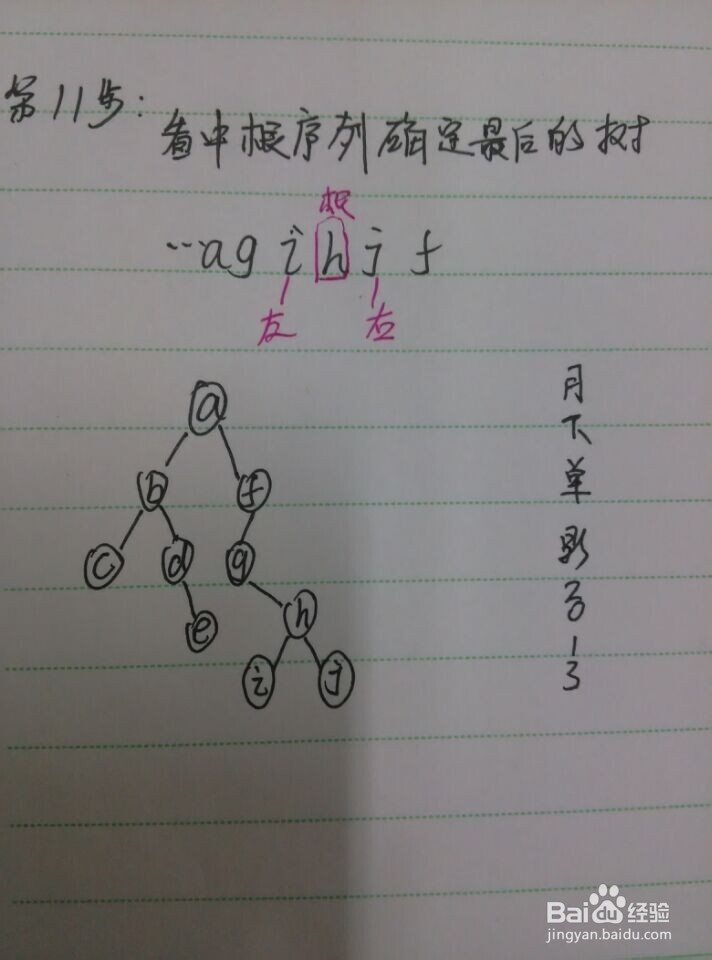 第11步:
看中根序列确定最后的树
根
…agihjf
左 右
a
b f
c d g
e h
i j
月下单影子13
Baidu经验
jingyan.baidu.com